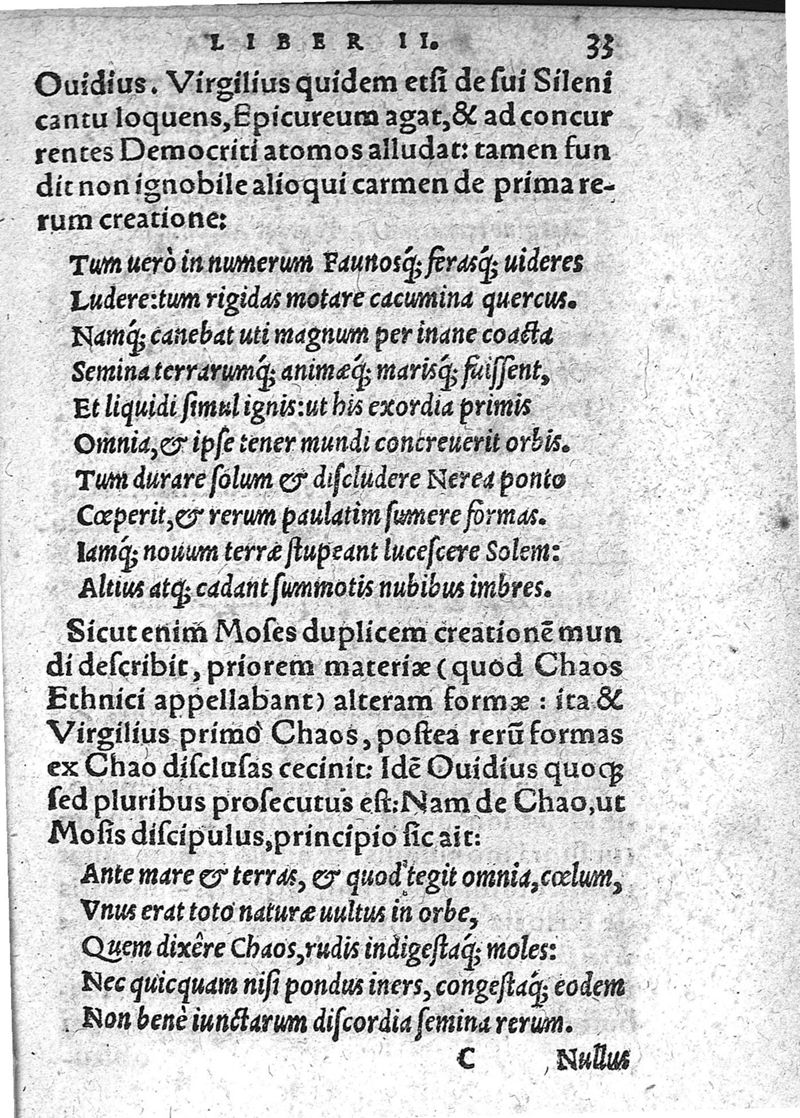 LIBER II. 33
Ouidius. Virgilius quidem etsi de sui Sileni
cantu loquens, Epicureum agat, & ad concur
rentes Democriti atomos alludat: tamen fun
dit non ignobile alioqui carmen de prima re-
rum creatione:
Tum uerò in numerum Faunosq́; ferasq́; uideres
Ludere: tum rigidas motare cacumina quercus.
Namq́; canebat uti magnum per inane coacta
Semina terrarumq́; animæq́; marisq́; fuissent,
Et liquidi simul ignis: ut his exordia primis
Omnia, & ipse tener mundi concreuerit orbis.
Tum durare solum & discludere Nerea ponto
Cœperit, & rerum paulatim sumere formas.
Iamq́; nouum terræ stupeant lucescere Solem:
Altius atq; cadant summotis nubibus imbres.
Sicut enim Moses duplicem creationē mun
di describit, priorem materiæ (quod Chaos
Ethnici appellabant) alteram formæ : ita &
Virgilius primò Chaos, postea rerū formas
ex Chao disclusas cecinit: Idē Ouidius quoq;
sed pluribus prosecutus est: Nam de Chao, ut
Mosis discipulus, principio sic ait:
Ante mare & terras, & quod tegit omnia, cœlum,
Vnus erat toto naturæ uultus in orbe,
Quem dixêre Chaos, rudis indigestaq́; moles:
Nec quicquam nisi pondus iners, congestaq́; eodem
Non benè iunctarum discordia semina rerum.
C Nullus